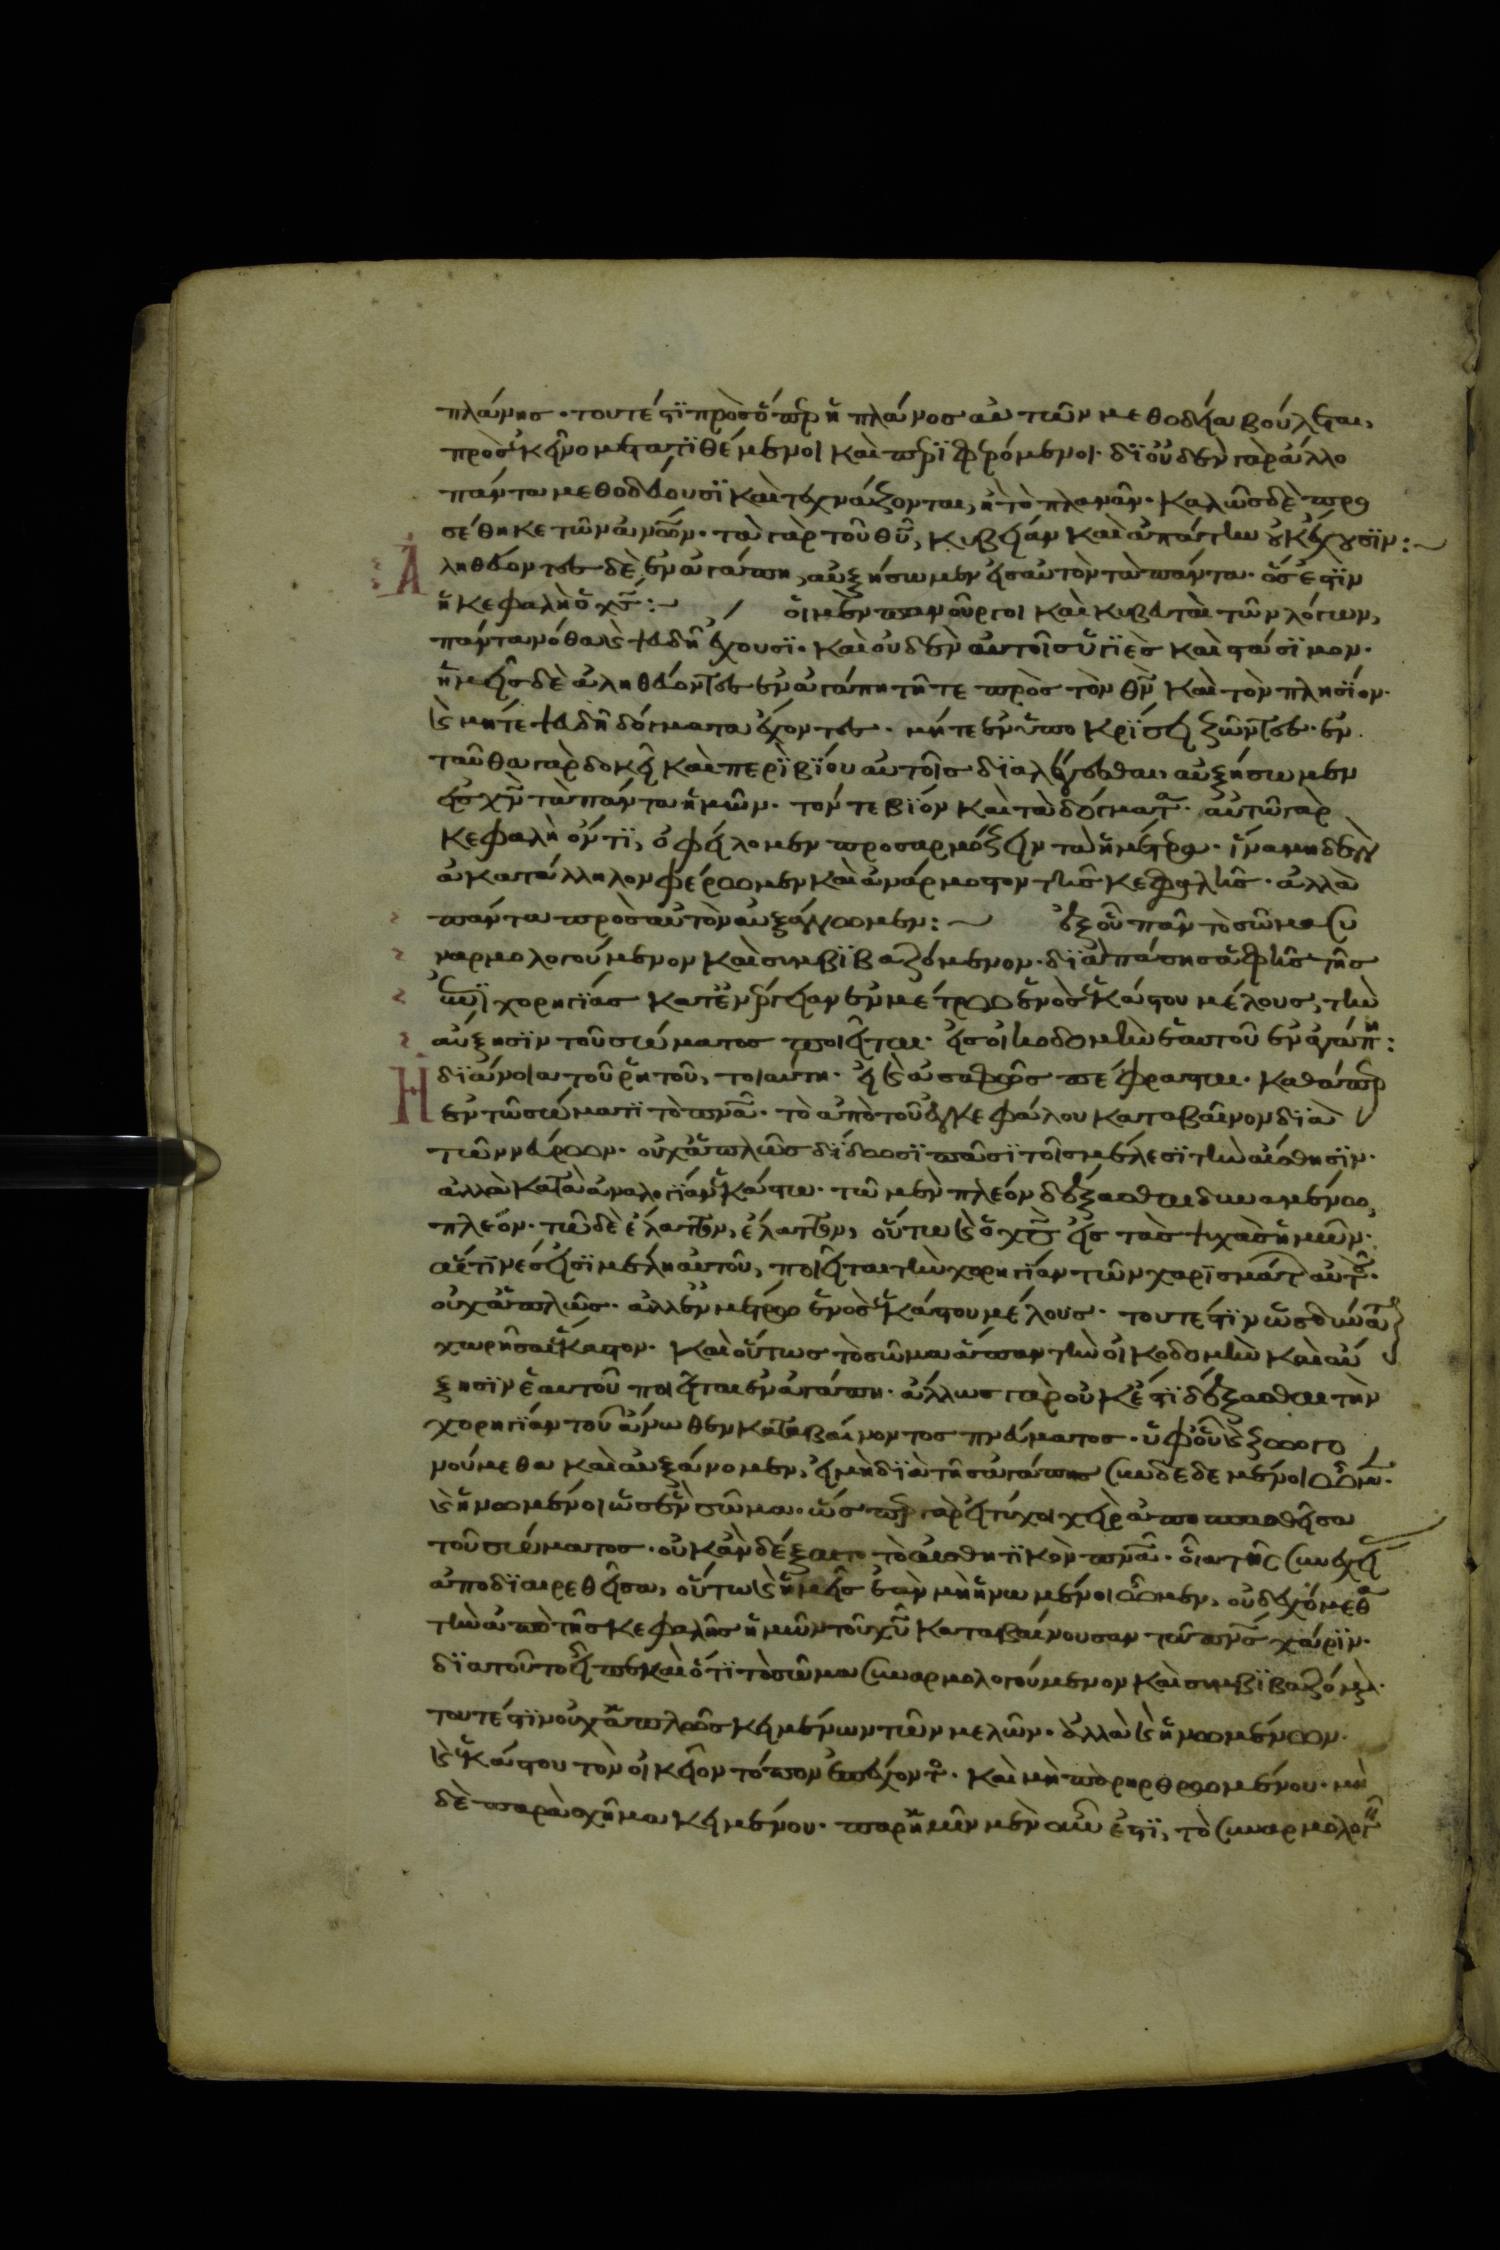 πλάνης · τουτέστι πρὸς ὅπερ ἡ πλάνος αὐτῶν μεθοδεία βούλεται,
πρὸς ἐκεῖνο μετατιθέμενοι καὶ περιφερόμενοι · δι' οὐδὲν γὰρ ἄλλο
πάντα μεθοδεύουσι καὶ τεχνάζονται, ἢ τὸ πλανᾶν · καλῶς δὲ προ
σέθηκε τῶν ἀνων · τὰ γὰρ τοῦ θυ, κυβείαν καὶ ἀπάτην οὐκ ἔχουσιν :
Ἀληθεύοντες δὲ ἐν ἀγάπη, αὐξήσωμεν εἰς αὐτὸν τὰ πάντα · ὅς ἐστιν
ἡ κεφαλὴ ὁ χς : οἱ μὲν πανοῦργοι καὶ κυβευταὶ τῶν λόγων,
πάντα νόθα καὶ ψευδῆ ἔχουσι · καὶ οὐδὲν αὐτοῖς ὑγιὲς καὶ στάσιμον ·
ἡμεῖς δὲ ἀληθεύοντες ἐν ἀγάπη τῆ τε πρὸς τὸν θν καὶ τὸν πλησίον ·
καὶ μήτε ψευδῆ δόγματα ἔχοντες · μήτε ἐν ὑποκρίσει ζῶντες · ἐν
ταῦθα γὰρ δοκεῖ καὶ περὶ βίου αὐτοῖς διαλέγεσθαι, αὐξήσωμεν
εἰς χν τὰ πάντα ἡμῶν · τόν τε βίον καὶ τὰ δόγματα · αὐτῶ γὰρ
κεφαλῆ ὄντι, ὀφείλομεν προσαρμόζειν τὰ ἡμέτερα · ἵνα μηδὲν
ἀκατάλληλον φέρωμεν καὶ ἀνάρμοστον τῆς κεφαλῆς · ἀλλὰ
πάντα πρὸς αὐτὸν αὐξάνωμεν : ἐξ οὗ πᾶν τὸ σῶμα συ
ναρμολογούμενον καὶ συμβιβαζόμενον · διὰ πάσης ἁφῆς τῆς
ἐπιχορηγίας κατ' ἐνέργειαν ἐν μέτρω ἑνὸς ἑκάστου μέλους, τὴν
αὔξησιν τοῦ σώματος ποιεῖται · εἰς οἰκοδομὴν ἑαυτοῦ ἐν ἀγάπη :
Ἡ διάνοια τοῦ ῥητοῦ, τοιαύτη · εἰ καὶ ἀσαφῶς πέφρασται · καθάπερ
ἐν τῶ σώματι τὸ πνα · τὸ ἀπὸ τοῦ ἐγκεφάλου καταβαῖνον διὰ
τῶν νεύρων · οὐχ ἁπλῶς δίδωσι πᾶσι τοῖς μέλεσι τὴν αἴσθησιν ·
ἀλλὰ κατὰ ἀναλογίαν ἑκάστω · τῶ μὲν πλέον δέξασθαι δυναμένω,
πλέον · τῶ δὲ ἔλαττον, ἔλαττον, οὕτω καὶ ὁ χς εἰς τὰς ψυχὰς ἡμῶν ·
αἵτινές εἰσι μέλη αὐτοῦ, ποιεῖται τὴν χορηγίαν τῶν χαρισμάτων αὐτοῦ ·
οὐχ ἁπλῶς · ἀλλ' ἐν μέτρω ἑνὸς ἑκάστου μέλους · τουτέστιν ὡς δύναται
χωρῆσαι ἕκαστον · καὶ οὕτως τὸ σῶμα ἅπαν τὴν οἰκοδομὴν καὶ αὔ
ξησιν ἑαυτοῦ ποιεῖται ἐν ἀγάπη · ἄλλως γὰρ οὐκ ἔστι δέξασθαι τὴν
χορηγίαν τοῦ ἄνωθεν καταβαίνοντος πνεύματος · ὑφ' οὗ καὶ ζωογο
νούμεθα καὶ αὐξάνομεν, εἰ μὴ διὰ τῆς ἀγάπης συνδεδεμένοι ὦμεν ·
καὶ ἡνωμένοι ὡς ἓν σῶμα · ὥσπερ γὰρ εἰ τύχοι χεὶρ ἀποσπασθεῖσα
τοῦ σώματος · οὐκ ἂν δέξαιτο τὸ αἰσθητικὸν πνα · οἷα τῆς συνεχεί
ἀποδιαιρεθεῖσα, οὕτω καὶ ἡμεῖς ἐὰν μὴ ἡνωμένοι ὦμεν, οὐ δεχόμεθα
τὴν ἀπὸ τῆς κεφαλῆς ἡμῶν τοῦ χυ καταβαίνουσαν τοῦ πνς χάριν ·
διὰ τοῦτο εἶπε καὶ ὅτι τὸ σῶμα συναρμολογούμενον καὶ συμβιβαζόμε ·
τουτέστιν οὐχ ἁπλῶς κειμένων τῶν μελῶν · ἀλλὰ καὶ ἡνωμένων ·
καὶ ἑκάστου τὸν οἰκεῖον τόπον ἐπέχοντος · καὶ μὴ παρηρθρωμένου · μὴ
δὲ παρὰ σχῆμα κειμένου · παρ' ἡμῖν μὲν οὖν ἐστι, τὸ συναρμολογη